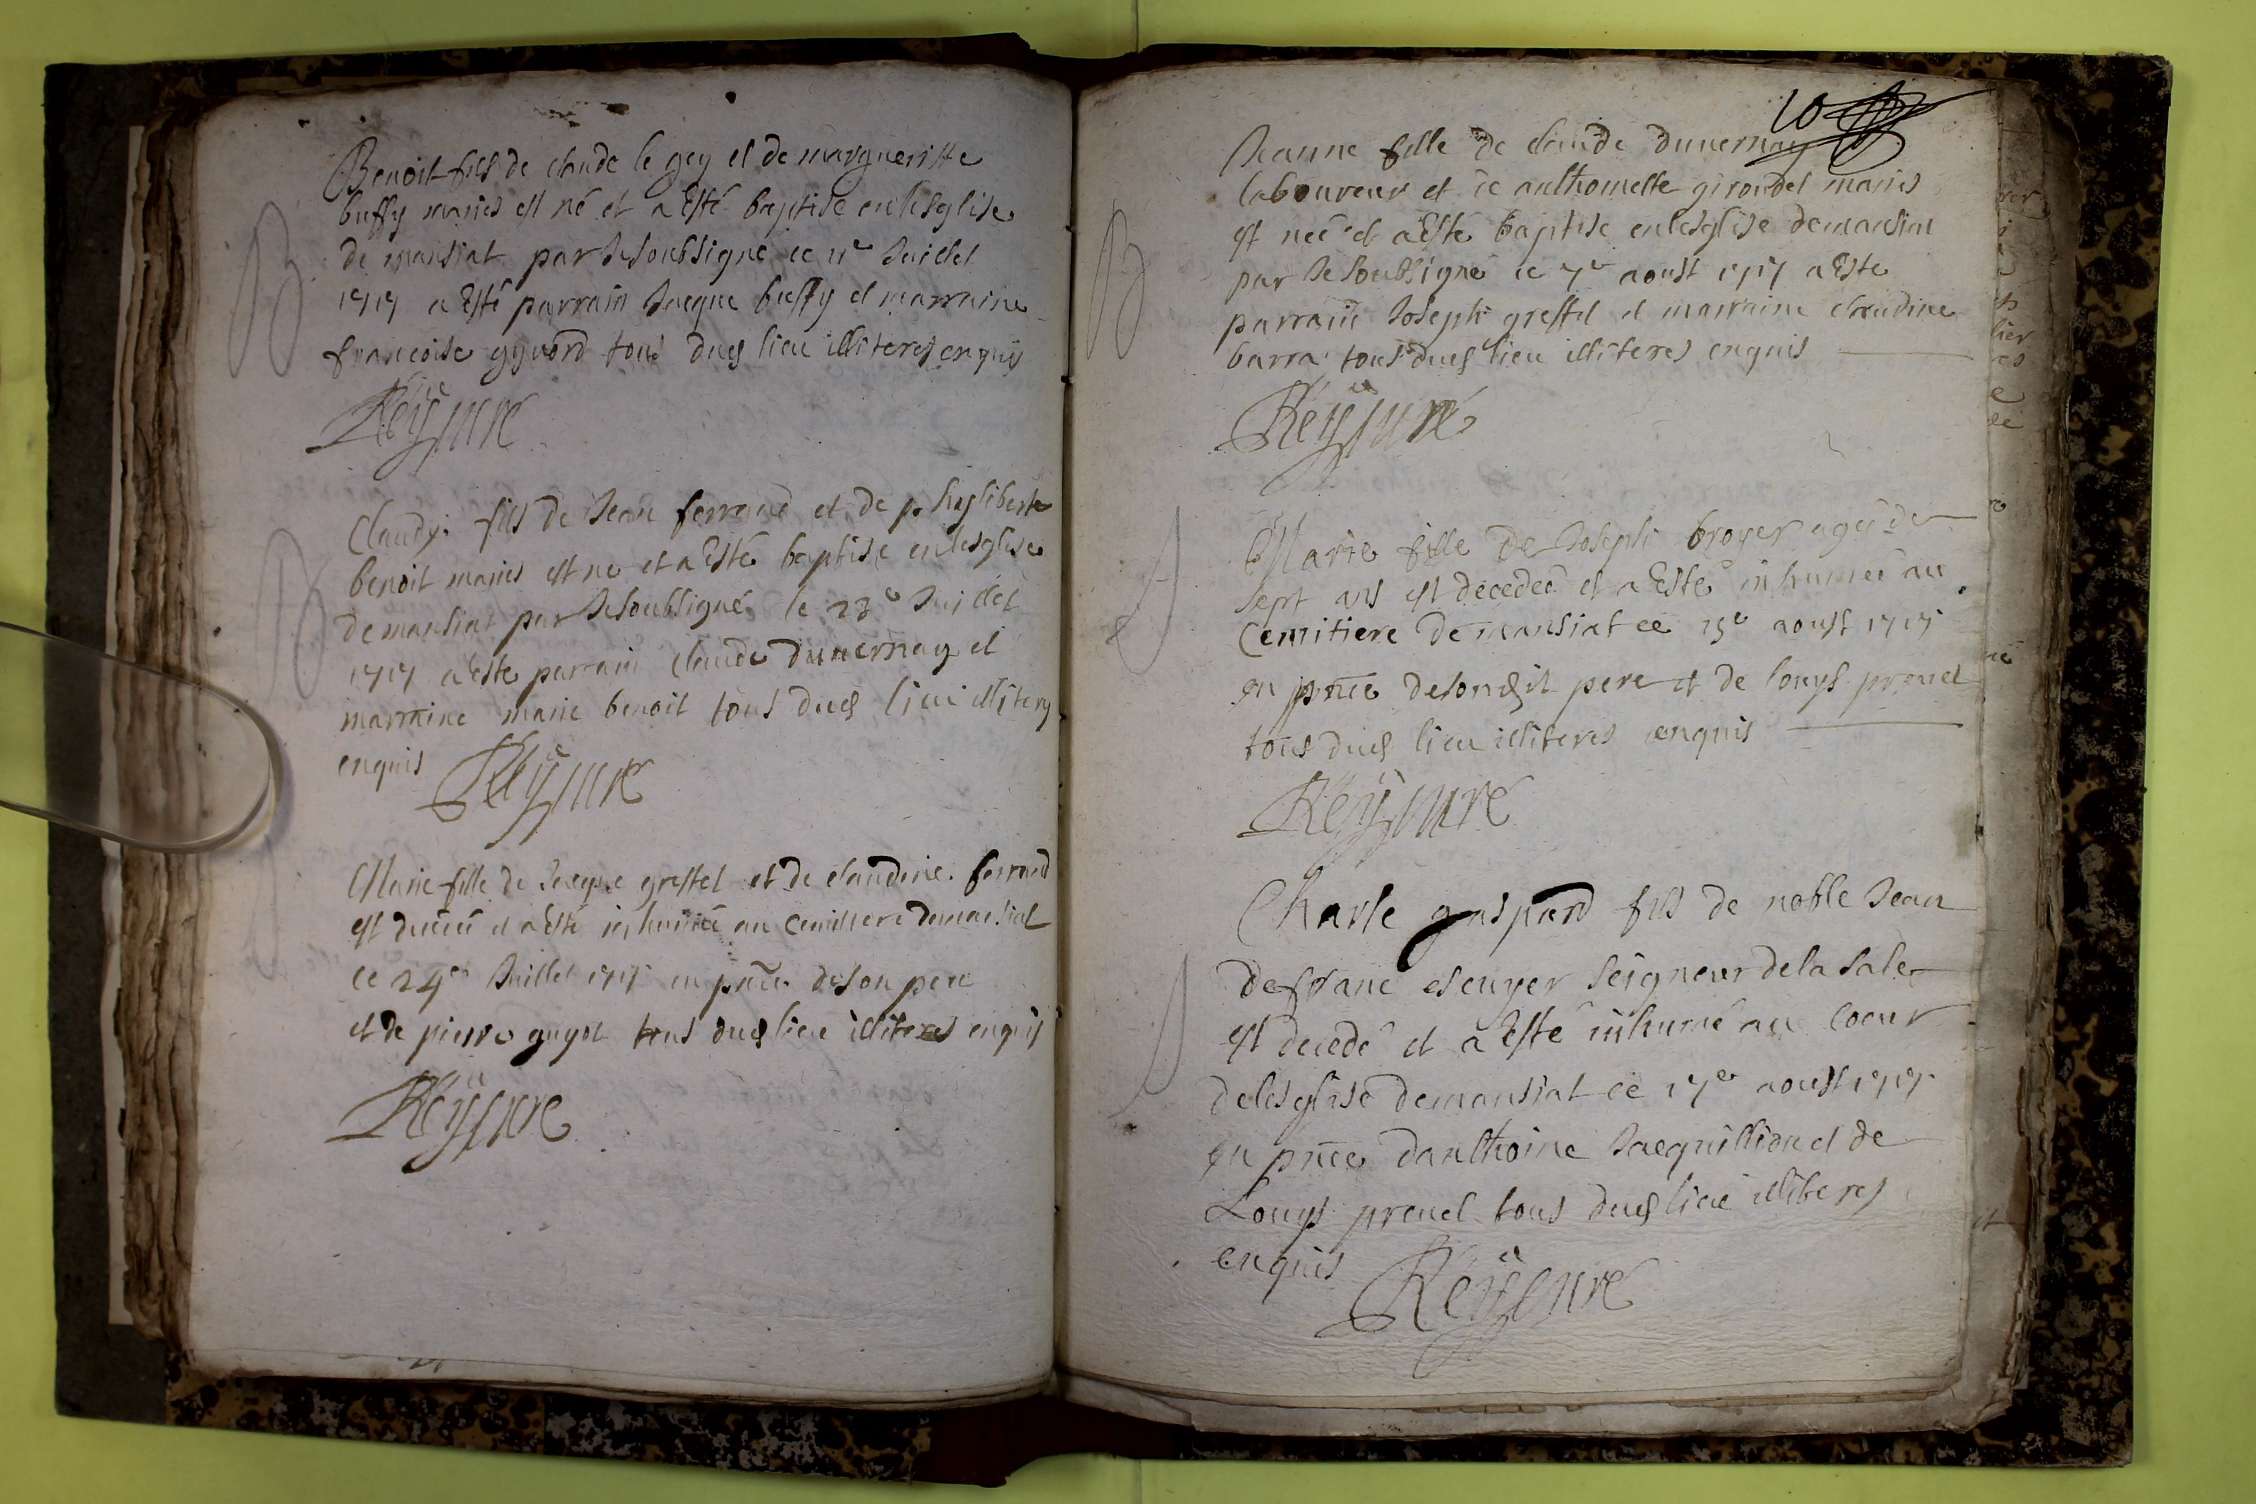 B
Benoit fils de claude le gey et de margueritte
buffy mariés est né et a Esté baptisé en lesglise
de mansiat par Je soubsigné ce 11e Juillet
1717 a Esté parrain Jacque buffy et marraine
francoise gyvord tous dud lieu illiteres enquis
Reyjure
B
Claudy fils de Jean ferrand et de phyliberte
benoit mariés est né et a Esté baptisé en lesglise
de mansiat par Je soubsigné le 23e Juillet
1717 a Este parrain claude duvernay et
marraine marie benoit tous dud lieu illiteres
enquis
Reyjure
Marie fille de Jacque greffet et de claudine ferrand
est et a Esté inhumée au cemittere de mansiat
ce 24e Juillet 1717 en pnce de son pere
et de pierre guyot tous dud lieu illiteres enquis
Reyjure
10
B
Jeanne fille de claude duvernay
laboureur et de anthoinette girondel mariés
est neé et a Esté baptisé en lesglise de mansiat
par Je soubsigné ce 7e aoust 1717 a Este
parrain Joseph greffet et marraine claudine
barra tous dud lieu illiteres enquis
Reyjure
Marie fille de Joseph broyer ageé de
sept ans est decedeé et a Esté inhumeé au
Cemitiere de mansiat ce 15e aoust 1717
en pnce de son dit pere et de louys prevel
tous dud lieu illiteres enquis
Reyjure
Charle gaspard fils de noble Jean
de franc escuyer seigneur de la sale
est decedé et a Esté inhumé au coeur
de lesglise de mansiat ce 17e aoust 1717
en pnce danthoine Jacquillion et de
Louys prevel tous dud lieu illiteres
enquis
Reyjure